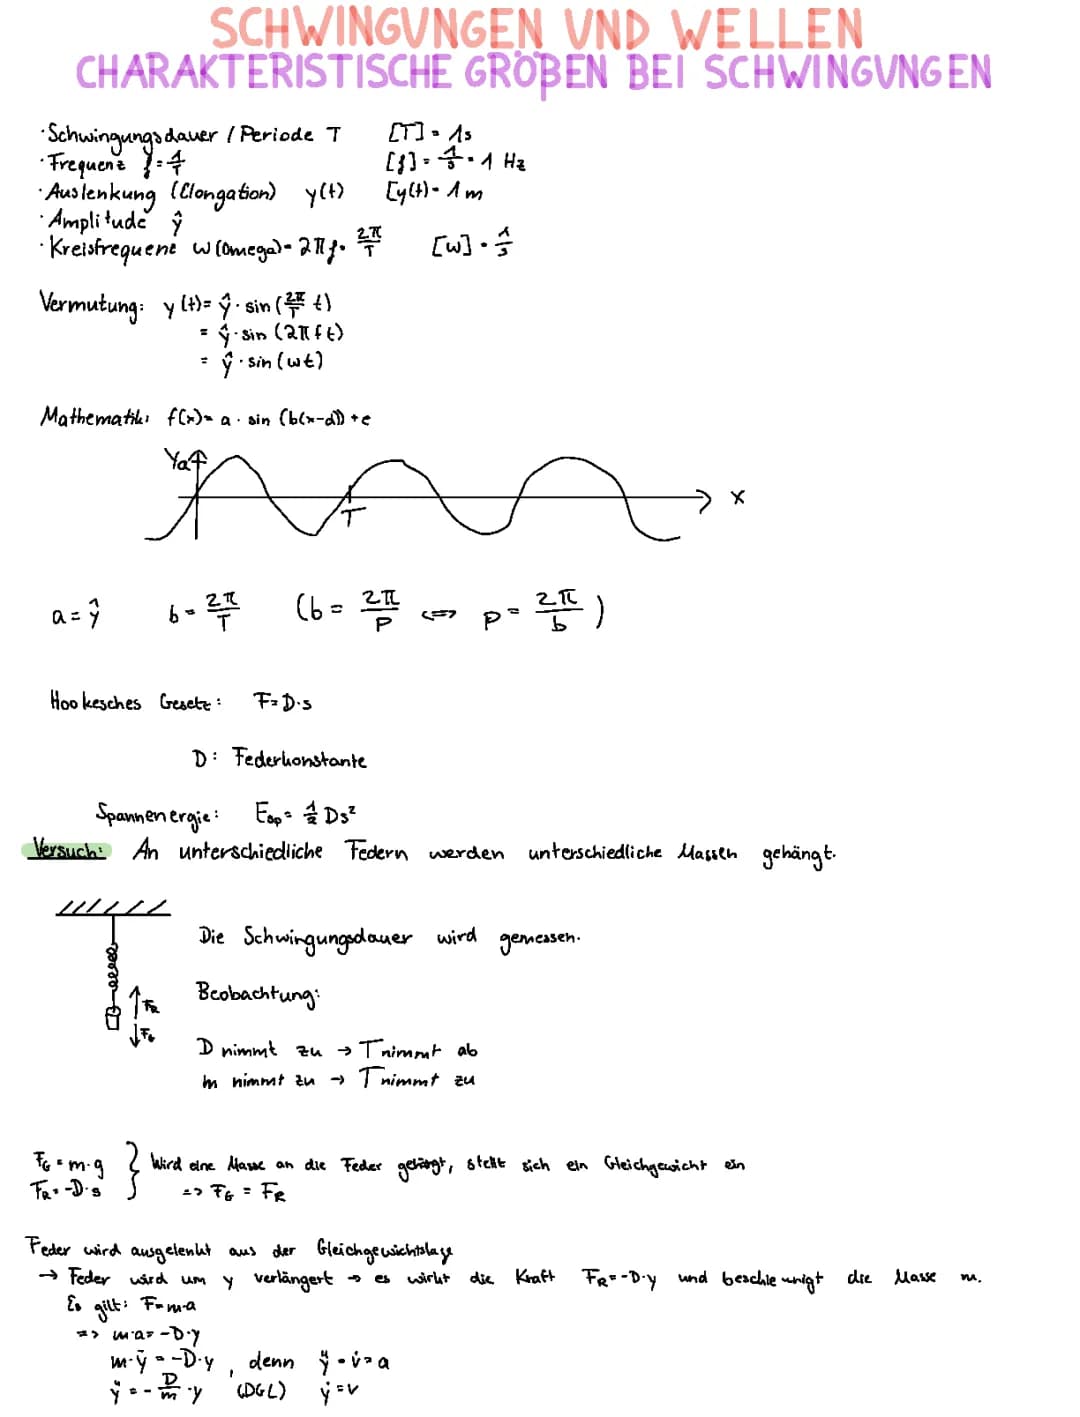 SCHWINGUNGEN UND WELLEN
CHARAKTERISTISCHE GRÖßEN BEI SCHWINGUNGEN
· Schwingungsdauer / Periode T [T] = 1s
· Frequenz f = 1/T [f] = 1/s = 1 Hz
· Auslenkung (Elongation) y(t) [y(t) = 1m
· Amplitude ŷ
· Kreisfrequenz ω (Omega) = 2πf = 2π/T [ω] = 1/s
Vermutung: y(t) = ŷ · sin(2π/T t)
= ŷ · sin(2πft)
= ŷ · sin(ωt)
Mathematik: f(x) = a · sin(b(x-d)) + e
Ya
T
x
a = ŷ b = 2π/T (b = 2π/P <=> p = 2π/b)
Hookesches Gesetz: F = D·s
D: Federkonstante
Spannenergie: Esp = 1/2 Ds²
Versuch: An unterschiedliche Federn werden unterschiedliche Massen gehängt.
Die Schwingungsdauer wird gemessen.
Beobachtung:
FR
FG
D nimmt zu → T nimmt ab
m nimmt zu → T nimmt zu
FG = m·g } Wird eine Masse an die Feder gehängt, stellt sich ein Gleichgewicht ein
FR = -D·s => FG = FR
Feder wird ausgelenkt aus der Gleichgewichtslage
→ Feder wird um y verlängert → es wirkt die Kraft FR = -D·y und beschleunigt die Masse m.
Es gilt: F = m·a
=> m·a = -D·y
m·ÿ = -D·y, denn ÿ = v̇ = a
ÿ = -D/m · y (DGL) ẏ = v